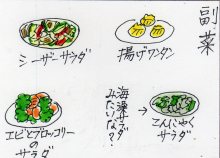 副菜
シーザーサラダ
揚げワンタン
エビとブロッコリーの
サラダ
海藻サラダ?
みたいな?
こんにゃく
サラダ